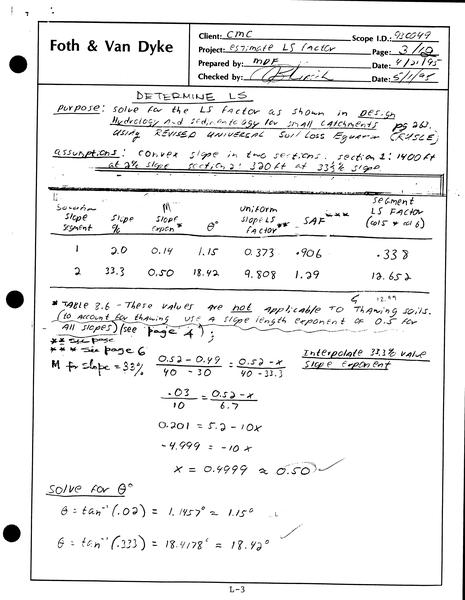 Foth & Van Dyke
Client: CMC Scope I.D.: 93C049
Project: estimate LS factor Page: 3/12
Prepared by: MDF Date: 4/21/95
Checked by: Date: 5/1/95
DETERMINE LS
purpose: solve for the LS factor as shown in Design
Hydrology and Sedimentology for Small Catchments pg 261.
Using REVISED UNIVERSAL Soil Loss Equation (RUSLE)
assumptions: convex slope in two sections: section 1: 1400 ft
at 2% slope section 2: 320 ft at 33 1/3 % slope.
slope segment Slope % M Slope expon* θ° uniform slope LS factor** SAF*** segment LS Factor (col 5 * col 6)
1 2.0 0.14 1.15 0.373 .906 .338
2 33.3 0.50 18.42 9.808 1.29 12.652
* TABLE 8.6 - These values are not applicable to thawing soils.
(to account for thawing use a slope length exponent of 0.5 for
All slopes) (see page 4);
** see page
*** see page 6
M for slope = 33% 0.52-0.49 / 40-30 = 0.52-x / 40-33.3 Interpolate 33.3% value
slope exponent
.03 / 10 = 0.52-x / 6.7
0.201 = 5.2-10x
-4.999 = -10x
x = 0.4999 ≈ 0.50
solve for θ°
θ = tan⁻¹ (.02) = 1.1457° = 1.15°
θ = tan⁻¹ (.333) = 18.4178° = 18.42°
L-3